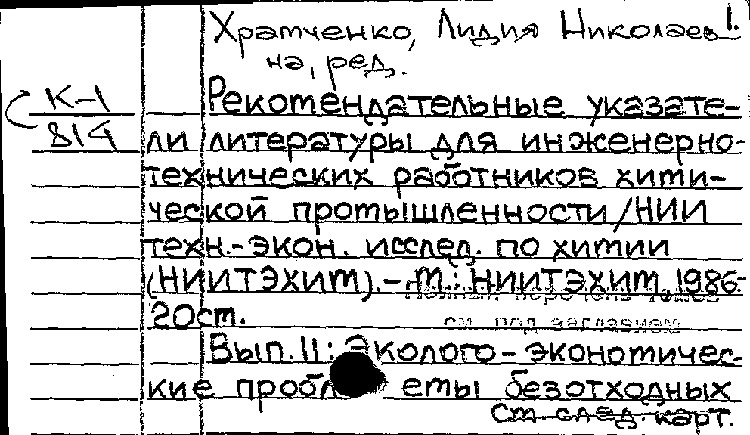 Храмченко, Лидия Николаев- 1.
на, ред.
К-1 Рекомендательные указате-
814 ли литературы для инженерно-
технических работников хими-
ческой промышленности/НИИ
техн.-экон. исслед. по химии
(НИИТЭХИМ).-М.: НИИТЭХИМ, 1986-
Полный перечень томов
20см.
см. под заглавием
Вып.11: Эколого-экономичес-
кие еты безотходных
См. след. карт.